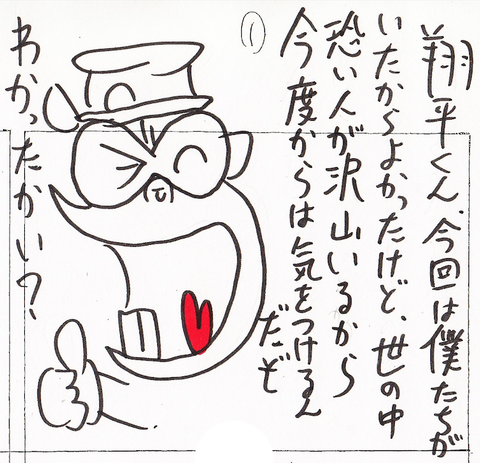 翔平くん、今回は僕たちが
いたからよかったけど、世の中
恐い人が沢山いるから
今度からは気をつけるん
だぞ
①
わかったかい?